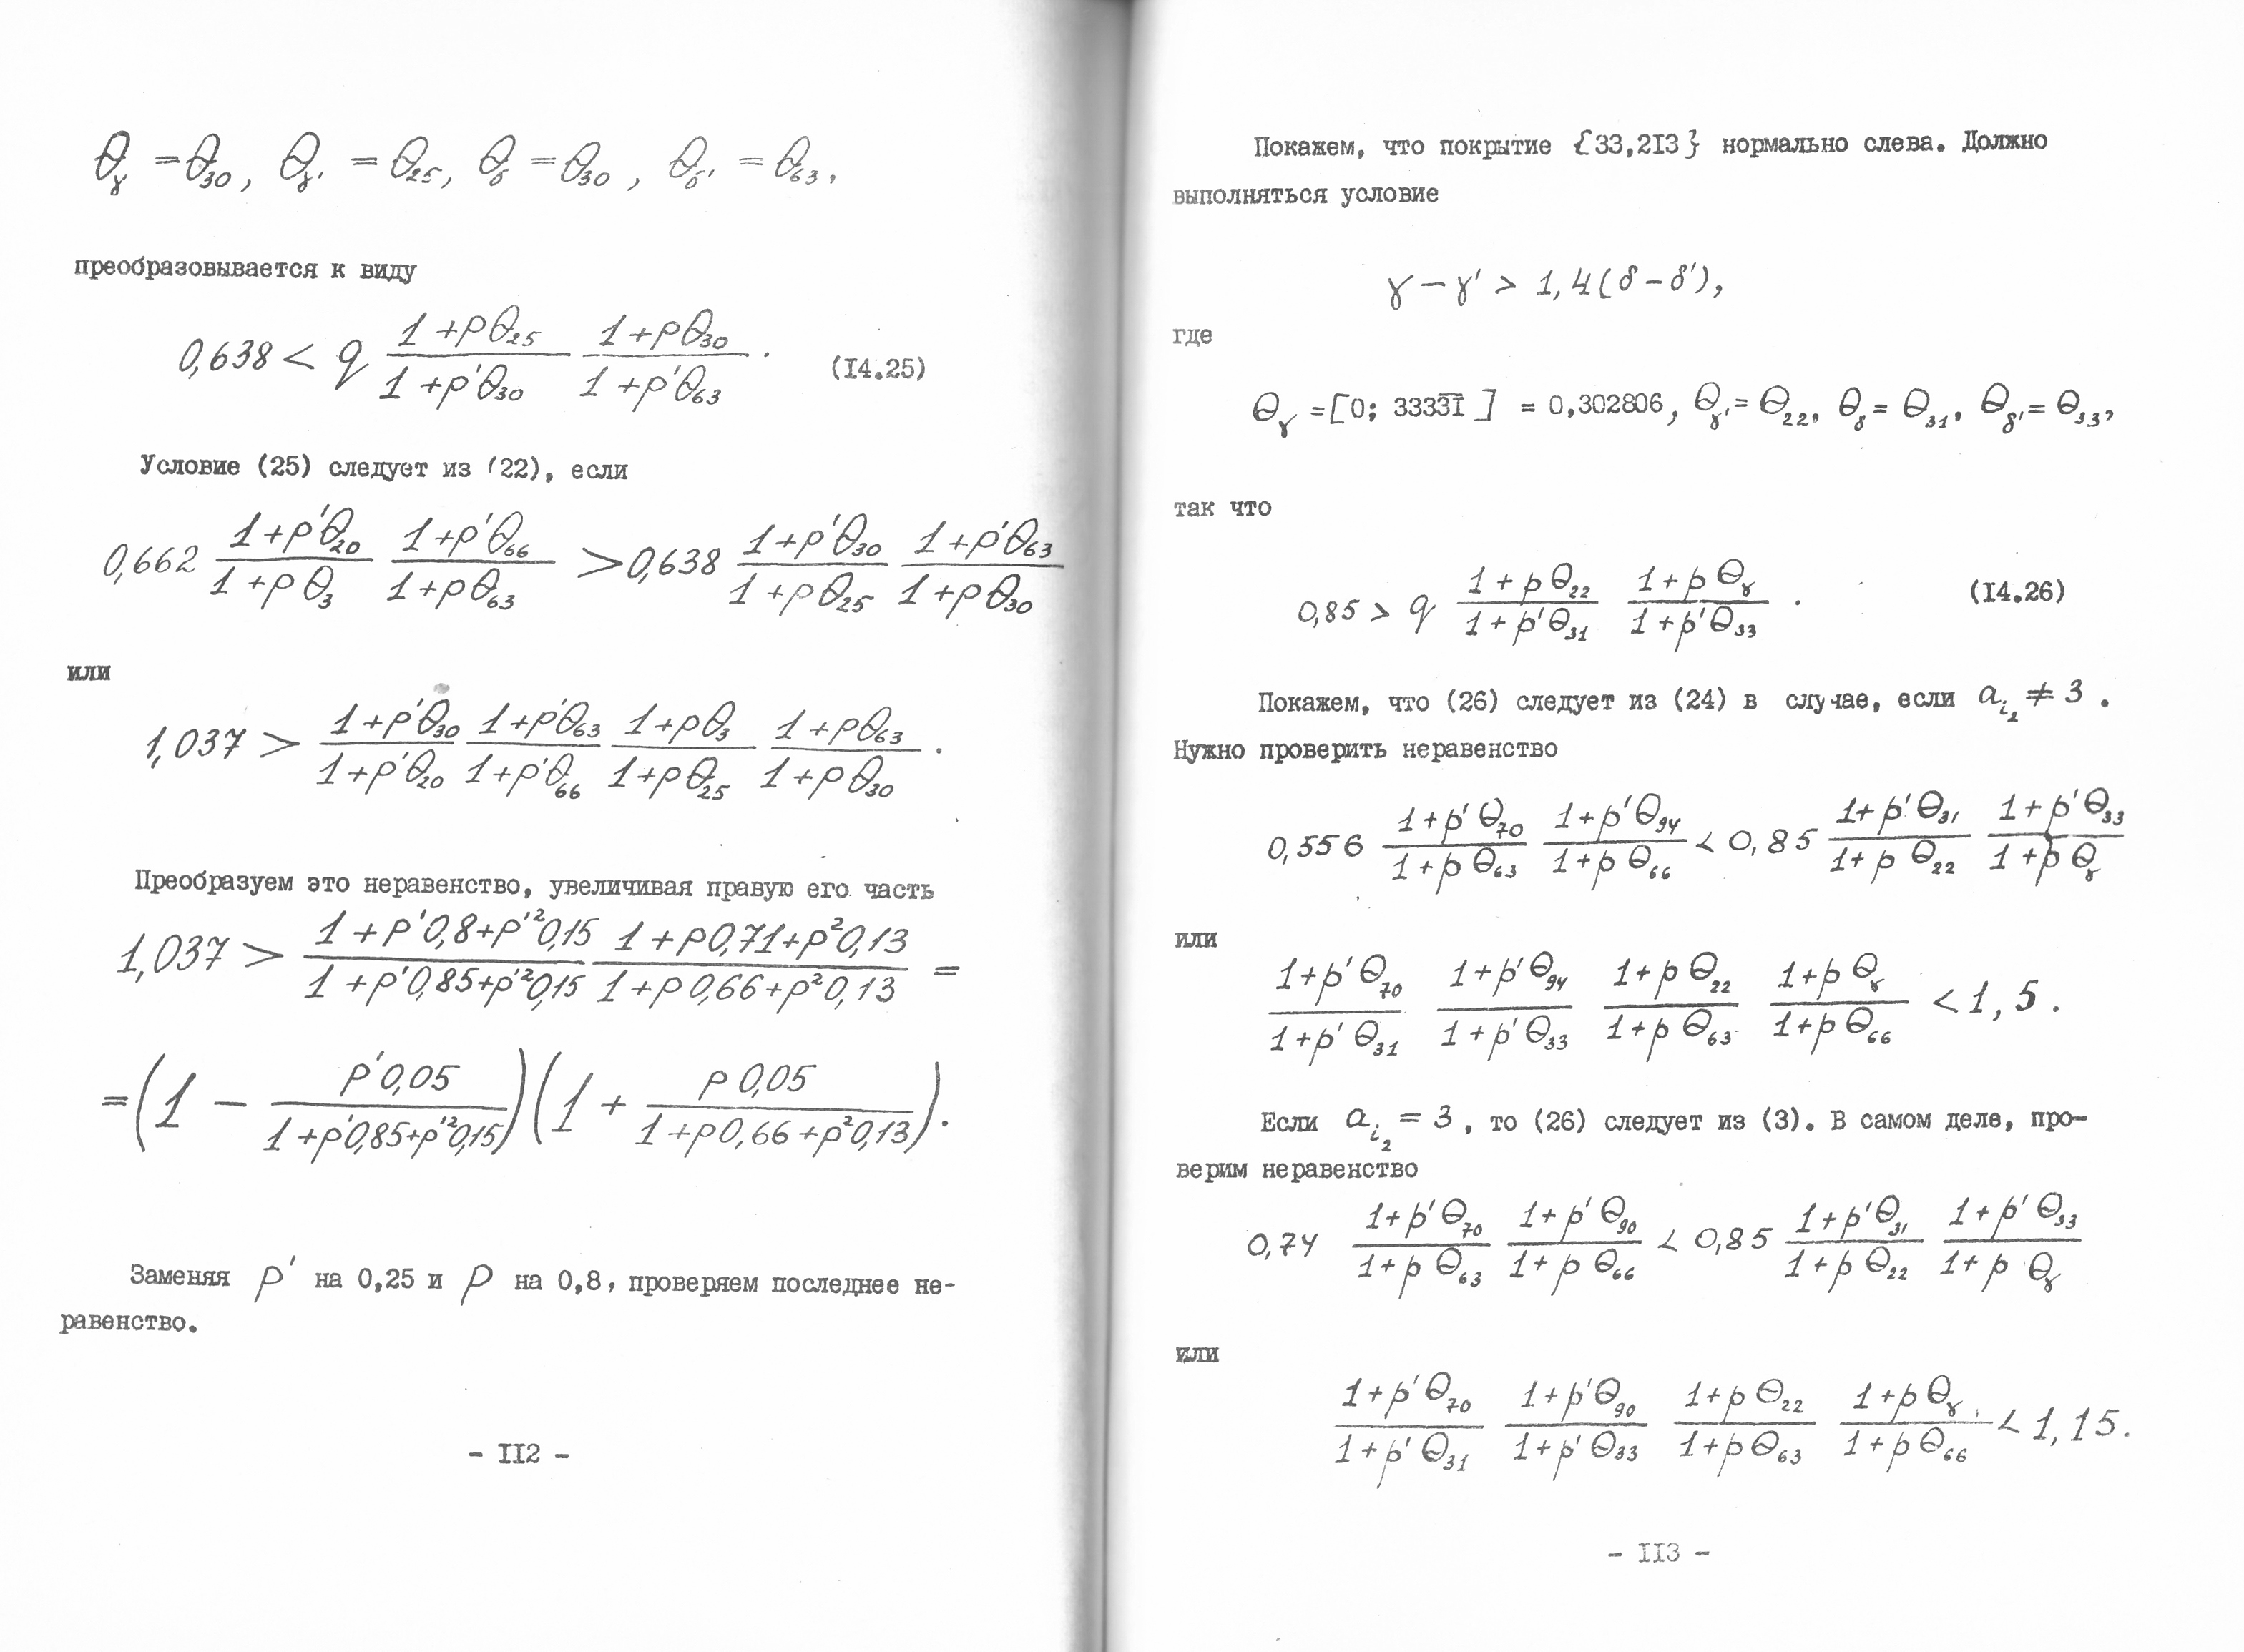 θ_γ = θ_30, θ_γ' = θ_25, θ_δ = θ_30, θ_δ' = θ_63,
преобразовывается к виду
0,638 < q (1+pθ_25)/(1+p'θ_30) (1+pθ_30)/(1+p'θ_63). (I4.25)
Условие (25) следует из (22), если
0,662 (1+p'θ_20)/(1+pθ_3) (1+p'θ_66)/(1+pθ_63) > 0,638 (1+p'θ_30)/(1+pθ_25) (1+p'θ_63)/(1+pθ_30)
или
1,037 > (1+p'θ_30)/(1+p'θ_20) (1+p'θ_63)/(1+p'θ_66) (1+pθ_3)/(1+pθ_25) (1+pθ_63)/(1+pθ_30).
Преобразуем это неравенство, увеличивая правую его часть
1,037 > (1+p'0,8+p'²0,15)/(1+p'0,85+p'²0,15) (1+p0,71+p²0,13)/(1+p0,66+p²0,13) =
= (1 − p'0,05/(1+p'0,85+p'²0,15)) (1 + p0,05/(1+p0,66+p²0,13)).
Заменяя p' на 0,25 и p на 0,8, проверяем последнее не-
равенство.
- II2 -
Покажем, что покрытие {33,2I3} нормально слева. Должно
выполняться условие
γ − γ' > 1,4(δ − δ'),
где
θ_γ = [0; 3333̅I̅] = 0,302806, θ_γ' = θ_22, θ_δ = θ_31, θ_δ' = θ_33,
так что
0,85 > q (1+pθ_22)/(1+p'θ_31) (1+pθ_γ)/(1+p'θ_33). (I4.26)
Покажем, что (26) следует из (24) в случае, если a_i_2 ≠ 3.
Нужно проверить неравенство
0,556 (1+p'θ_70)/(1+pθ_63) (1+p'θ_94)/(1+pθ_66) < 0,85 (1+p'θ_31)/(1+pθ_22) (1+p'θ_33)/(1+pθ_γ)
или
(1+p'θ_70)/(1+p'θ_31) (1+p'θ_94)/(1+p'θ_33) (1+pθ_22)/(1+pθ_63) (1+pθ_γ)/(1+pθ_66) < 1,5.
Если a_i_2 = 3, то (26) следует из (3). В самом деле, про-
верим неравенство
0,74 (1+p'θ_70)/(1+pθ_63) (1+p'θ_90)/(1+pθ_66) < 0,85 (1+p'θ_31)/(1+pθ_22) (1+p'θ_33)/(1+pθ_γ)
или
(1+p'θ_70)/(1+p'θ_31) (1+p'θ_90)/(1+p'θ_33) (1+pθ_22)/(1+pθ_63) (1+pθ_γ)/(1+pθ_66) < 1,15.
- II3 -